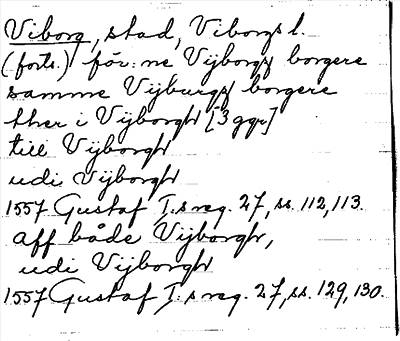 Viborg, stad, Viborgs l.
(forts.) för:ne Vijborgs borgere
samme Vijburgs borgere
ther i Vijborgh [3 ggr]
till Vijborgh
udi Vijborgh
1557 Gustaf I:s reg. 27, ss. 112, 113.
aff både Vijborgh,
udi Vijborgh
1557 Gustaf I:s reg. 27, ss. 129, 130.